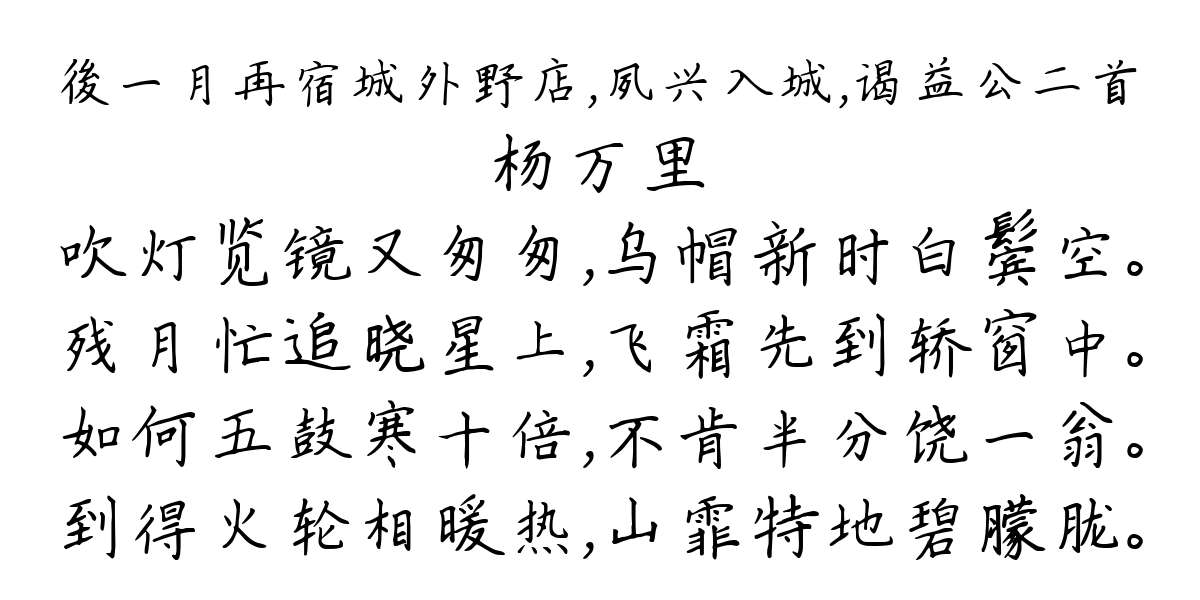 後一月再宿城外野店,夙兴入城,谒益公二首
杨万里
吹灯览镜又匆匆,乌帽新时白鬓空。
残月忙追晓星上,飞霜先到轿窗中。
如何五鼓寒十倍,不肯半分饶一翁。
到得火轮相暖热,山霏特地碧朦胧。